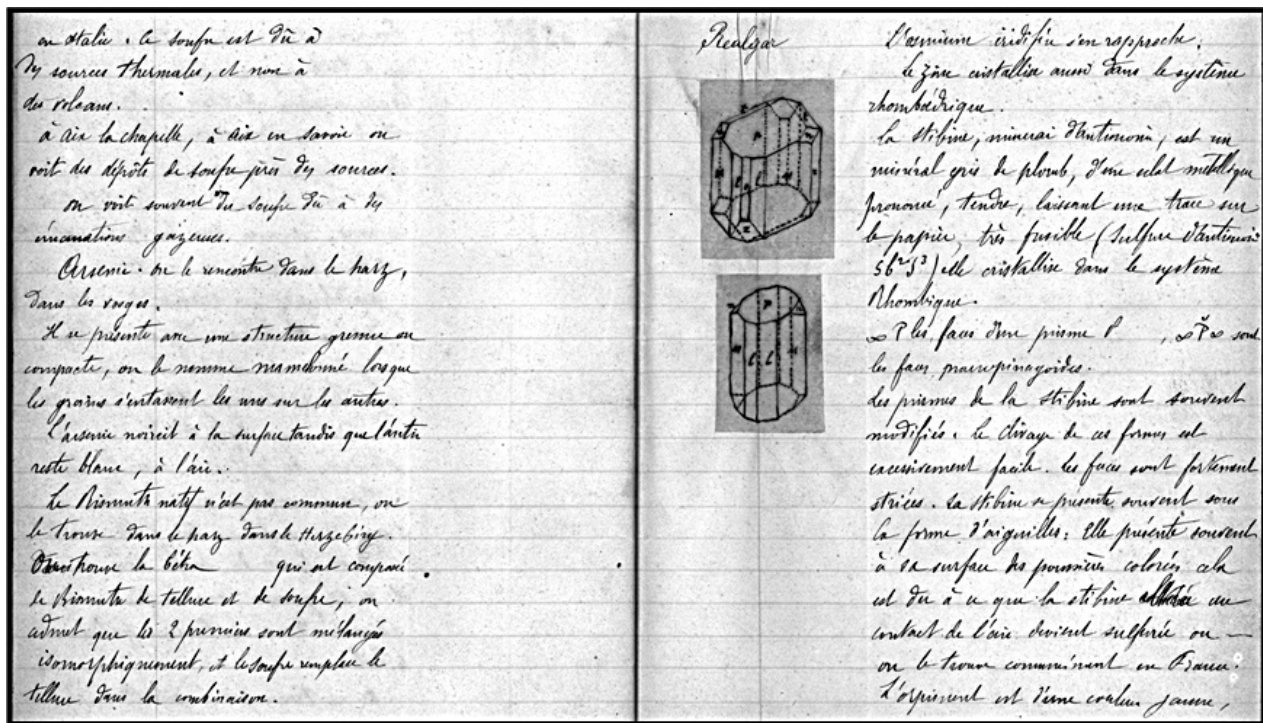 en Italie. Ce soufre est dû à
des sources thermales, et non à
des volcans.
à aix la chapelle, à aix en savoie on
voit des dépôts de soufre près des sources.
on voit souvent du soufre dû à des
émanations gazeuses.
Arsenic. On le rencontre dans le harz,
dans les vosges.
Il se présente avec une structure grenue ou
compacte, on le nomme mamelonné lorsque
les grains s'entassent les uns sur les autres.
L'arsenic noircit à la surface tandis que l'antim
reste blanc, à l'air.
Le Bismuth natif n'est pas commun, on
le trouve dans le harz dans le Herzebirg.
On trouve la qui est composé
de Bismuth de tellure et de soufre, on
admet que les 2 premiers sont mélangés
isomorphiquement, et le soufre remplace le
tellure dans la combinaison.
Realgar
L'osmium iridifère s'en rapproche.
Le Zinc cristallise aussi dans le système
rhomboédrique.
La stibine, minerai d'antimoine, est un
minéral gris de plomb, d'une eclat metallique
prononcé, tendre, laissant une trace sur
le papier, très fusible (sulfure d'antimoine
Sb²S³) elle cristallise dans le système
Rhombique.
∞P les faces d'une prisme P , ∞P̆∞ sont
les faces
Les prismes de la stibine sont souvent
modifiés. Le clivage de ces formes est
excessivement facile. Les faces sont fortement
striées. La stibine se présente souvent sous
la forme d'aiguilles: Elle présente souvent
à sa surface des poussières colorées cela
est du à ce que la stibine au
contact de l'air devient sulfurée ou —
on le trouve communément en France.
L'orpiment est d'une couleur jaune,